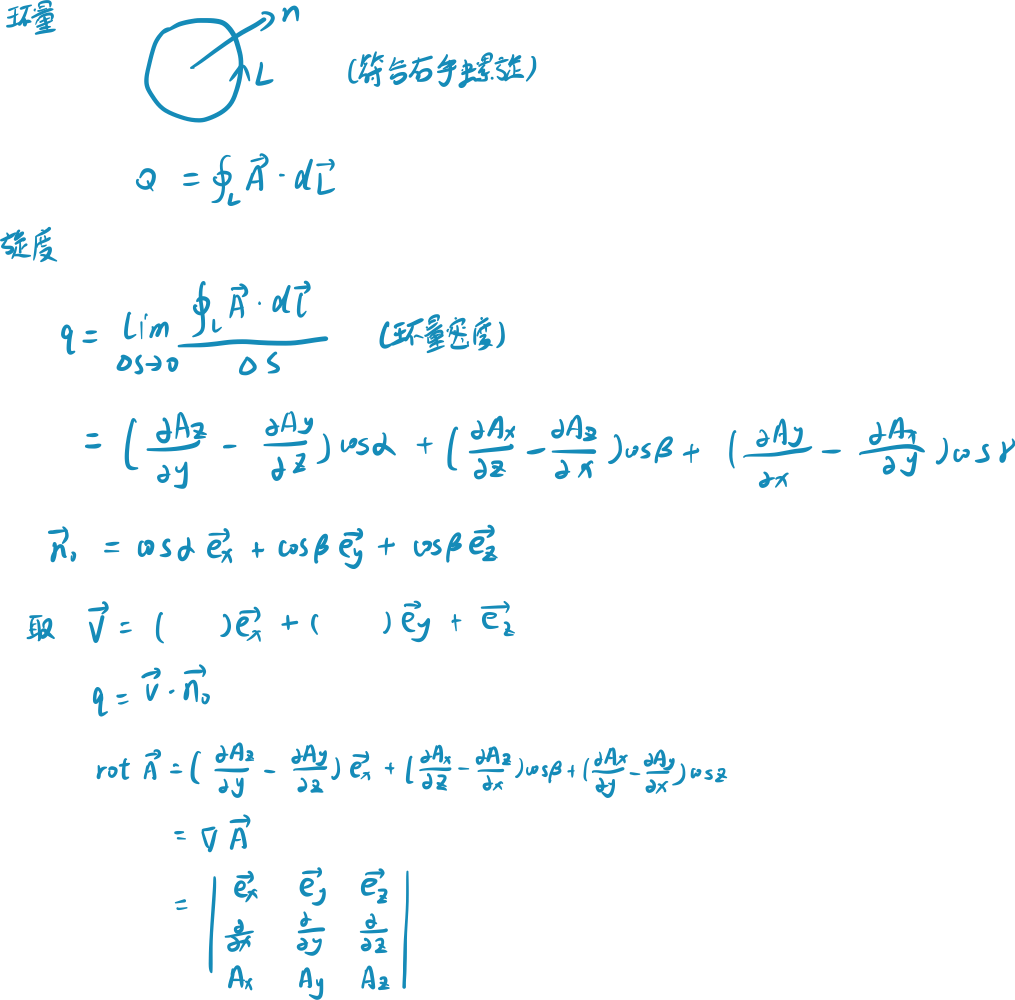 环量
n
L
(符合右手螺旋)
Q = ∮_L A⃗ · dL⃗
旋度
q = lim_{ΔS→0} (∮_L A⃗ · dl⃗)/(ΔS) (环量密度)
= (∂Az/∂y - ∂Ay/∂z) cosα + (∂Ax/∂z - ∂Az/∂x) cosβ + (∂Ay/∂x - ∂Ax/∂y) cosγ
n⃗₀ = cosα e⃗x + cosβ e⃗y + cosβ e⃗z
取 V⃗ = ( ) e⃗x + ( ) e⃗y + e⃗z
q = V⃗ · n⃗₀
rot A⃗ = (∂Az/∂y - ∂Ay/∂z) e⃗x + (∂Ax/∂z - ∂Az/∂x) cosβ + (∂Ax/∂y - ∂Ay/∂x) cosz
= ∇ A⃗
= | e⃗x e⃗y e⃗z |
| ∂/∂x ∂/∂y ∂/∂z |
| Ax Ay Az |